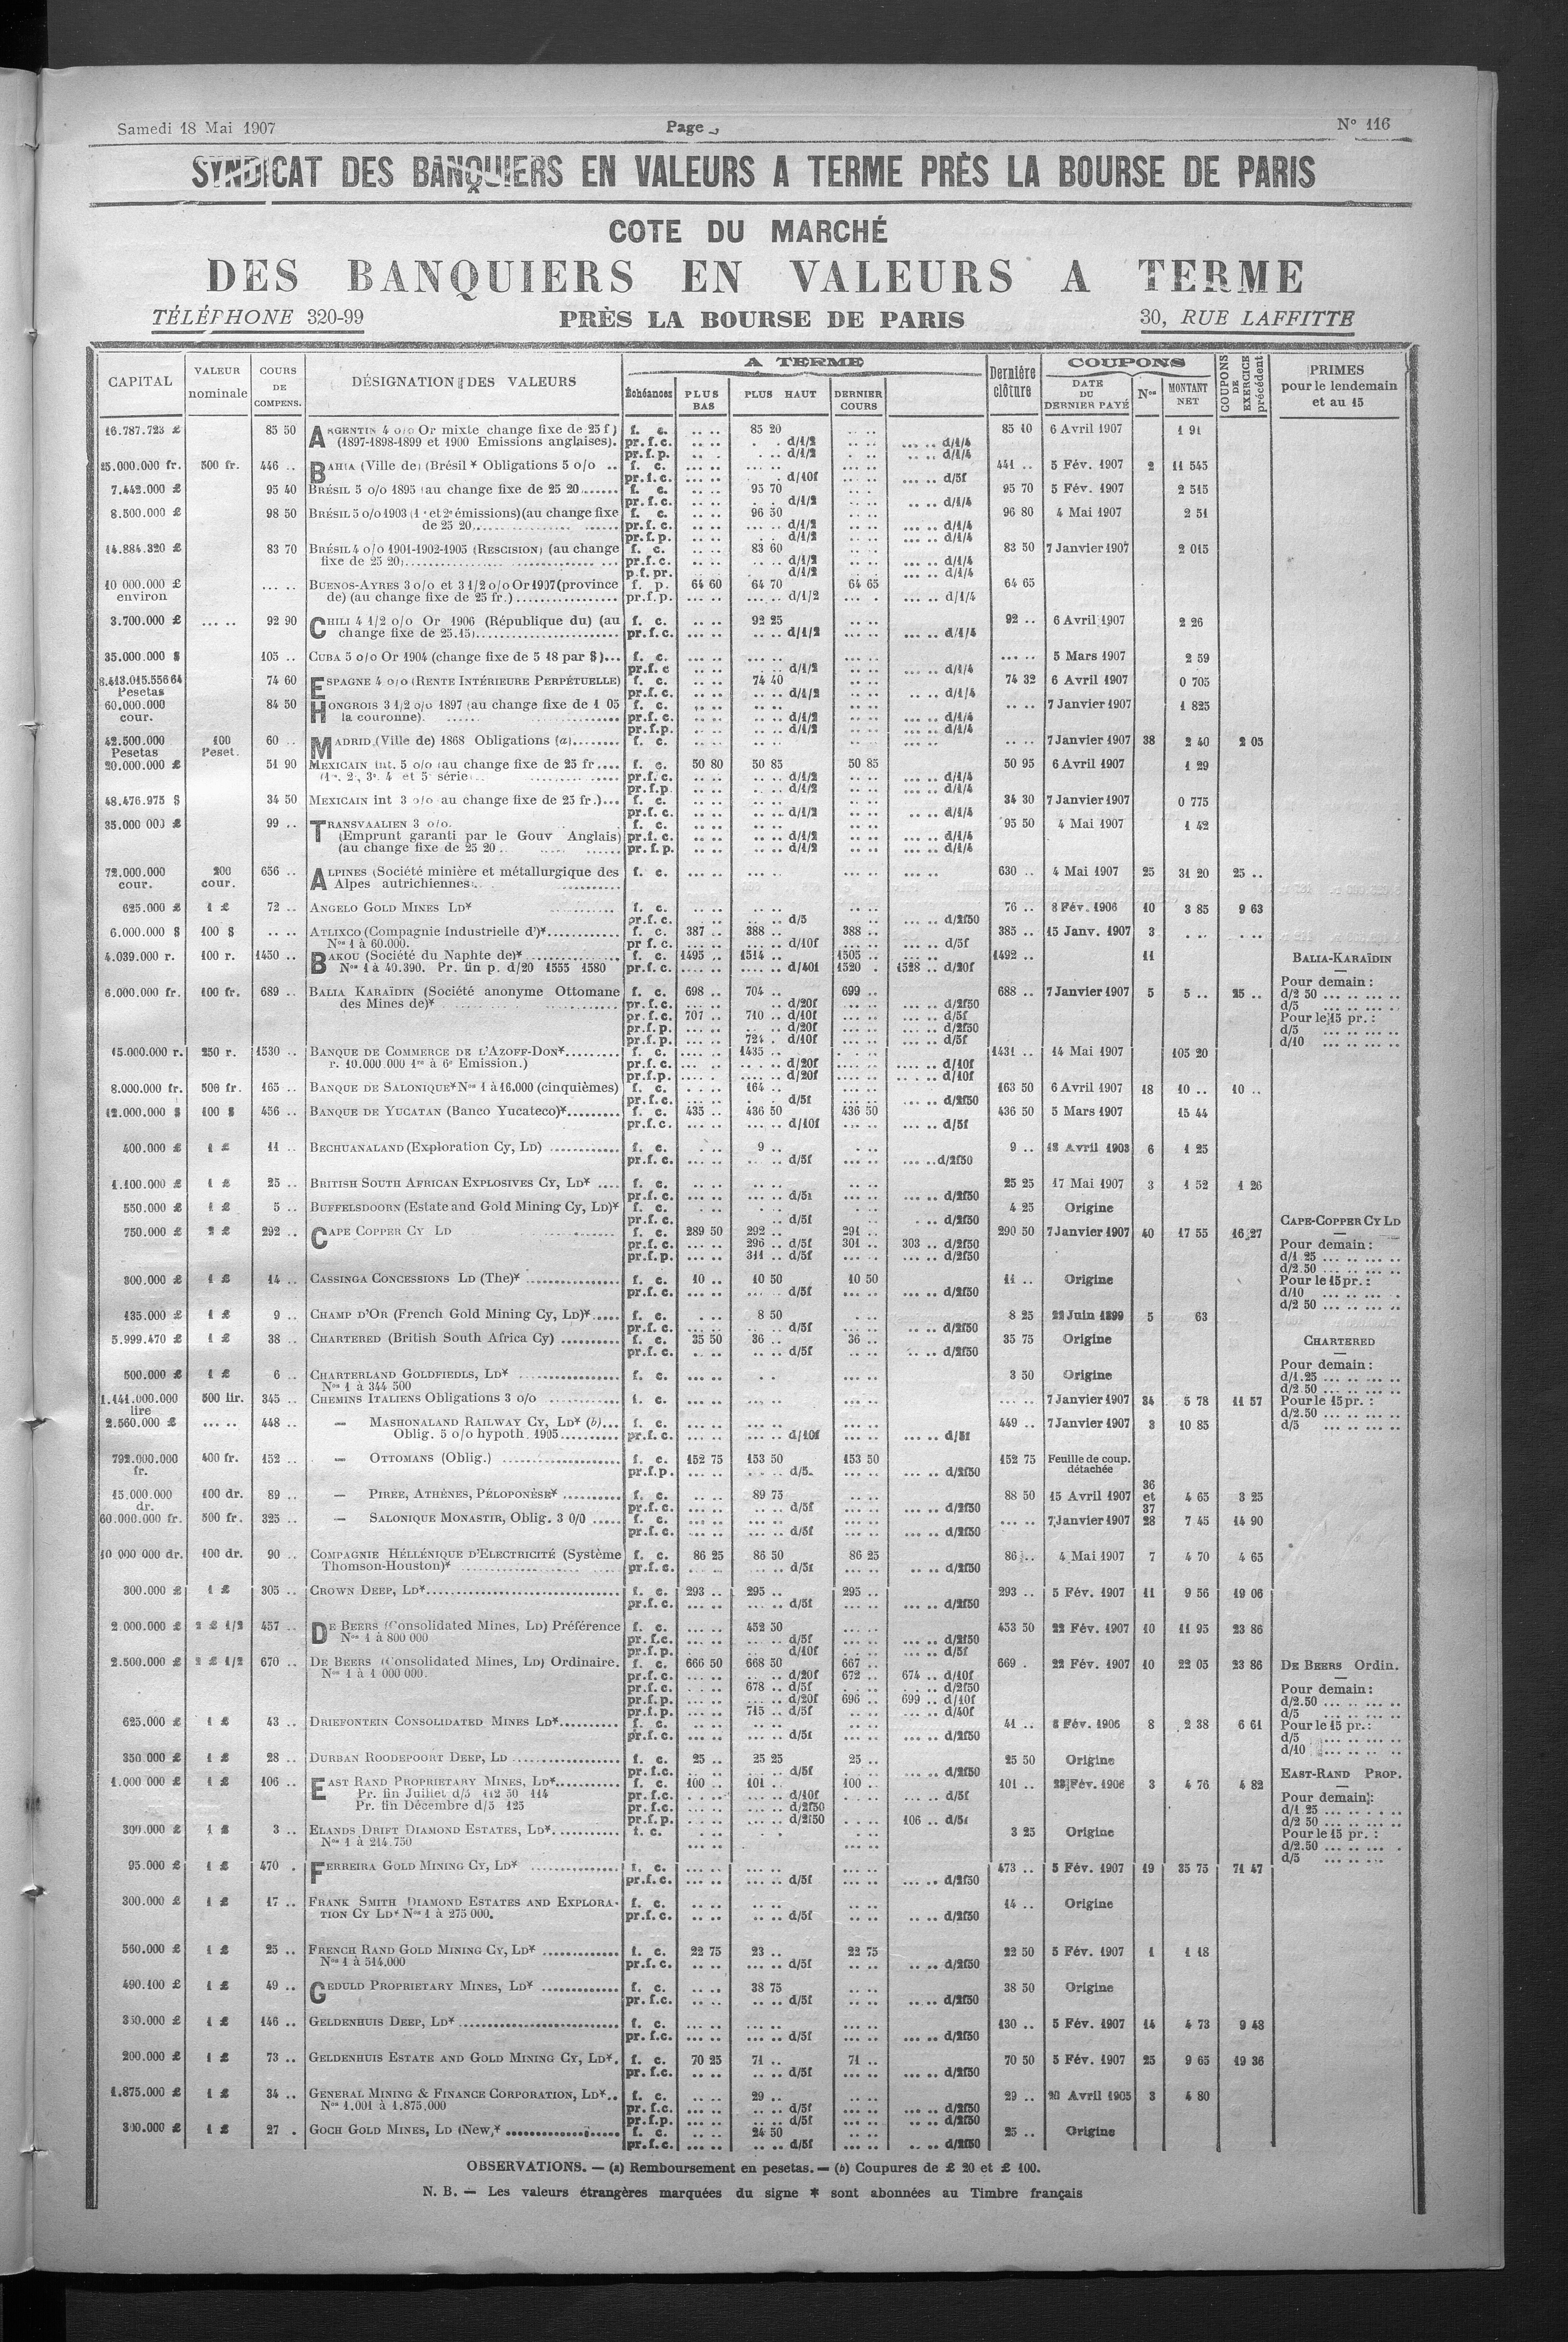 Samedi 18 Mai 1907
Page
N° 116
SYNDICAT DES BANQUIERS EN VALEURS A TERME PRÈS LA BOURSE DE PARIS
COTE DU MARCHÉ
DES BANQUIERS EN VALEURS A TERME
TÉLÉPHONE 320-99 PRÈS LA BOURSE DE PARIS 30, RUE LAFFITTE
CAPITAL VALEUR nominale COURS DE COMPENS. DÉSIGNATION DES VALEURS A TERME Échéances PLUS BAS PLUS HAUT DERNIER COURS Dernière clôture COUPONS DATE DU DERNIER PAYÉ Nos MONTANT NET COUPONS DE EXERCICE précédent PRIMES pour le lendemain et au 15
16.787.723 £ 85 50 ARGENTIN 4 o/o Or mixte change fixe de 25 f) f. c. .. .. 85 20 .. .. 85 10 6 Avril 1907 1 91
(1897-1898-1899 et 1900 Emissions anglaises). pr. f. c. .. .. d/1/2 .. .. d/1/4
pr. f. p. .. .. d/1/2 .. .. d/1/4
25.000.000 fr. 500 fr. 446 .. BAHIA (Ville de) (Brésil * Obligations 5 o/o .. f. c. 441 .. 5 Fév. 1907 2 11 545
pr. f. c. d/10f d/5f
7.442.000 £ 95 40 BRÉSIL 5 o/o 1895 (au change fixe de 25 20 f. c. 95 70 95 70 5 Fév. 1907 2 515
pr. f. c. d/1/2 d/1/4
8.500.000 £ 98 50 BRÉSIL 5 o/o 1903 (1re et 2e émissions) (au change fixe f. c. 96 50 96 80 4 Mai 1907 2 51
de 25 20) pr. f. c. d/1/2 d/1/4
pr. f. p. d/1/2 d/1/4
14.884.320 £ 83 70 BRÉSIL 4 o/o 1901-1902-1905 (RESCISION) (au change f. c. 83 60 83 50 7 Janvier 1907 2 015
fixe de 25 20) pr. f. c. d/1/2 d/1/4
p. f. pr. d/1/2 d/1/4
10 000.000 £ .. .. BUENOS-AYRES 3 o/o et 3 1/2 o/o Or 1907 (province f. p. 64 60 64 70 64 65 64 65
environ de) (au change fixe de 25 fr.) pr. f. p. d/1/2 d/1/4
3.700.000 £ .. .. 92 90 CHILI 4 1/2 o/o Or 1906 (République du) (au f. c. 92 25 92 .. 6 Avril 1907 2 26
change fixe de 25.15) pr. f. c. d/1/2 d/1/4
35.000.000 $ 105 .. CUBA 5 o/o Or 1904 (change fixe de 5 18 par $) f. c. .. .. 5 Mars 1907 2 59
pr. f. c. d/1/2 d/1/4
8.413.015.556 64 74 60 ESPAGNE 4 o/o (RENTE INTÉRIEURE PERPÉTUELLE) f. c. 74 40 74 32 6 Avril 1907 0 705
Pesetas pr. f. c. d/1/2 d/1/4
60.000.000 84 50 HONGROIS 3 1/2 o/o 1897 (au change fixe de 1 05 f. c. .. .. 7 Janvier 1907 1 825
cour. la couronne). pr. f. c. d/1/2 d/1/4
pr. f. p. d/1/2 d/1/4
42.500.000 100 60 .. MADRID (Ville de) 1868 Obligations (a) f. c. .. .. 7 Janvier 1907 38 2 40 2 05
Pesetas Peset.
20.000.000 £ 51 90 MEXICAIN int. 5 o/o (au change fixe de 25 fr f. c. 50 80 50 85 50 85 50 95 6 Avril 1907 1 29
(1re, 2e, 3e, 4e et 5e série) pr. f. c. d/1/2 d/1/4
pr. f. p. d/1/2 d/1/4
48.476.975 $ 34 50 MEXICAIN int 3 o/o au change fixe de 25 fr.) f. c. 34 30 7 Janvier 1907 0 775
pr. f. c. d/1/2 d/1/4
35.000 000 £ 99 .. TRANSVAALIEN 3 o/o. f. c. 95 50 4 Mai 1907 1 42
(Emprunt garanti par le Gouv Anglais) pr. f. c. d/1/2 d/1/4
(au change fixe de 25 20 pr. f. p. d/1/2 d/1/4
72.000.000 200 656 .. ALPINES (Société minière et métallurgique des f. c. 630 .. 4 Mai 1907 25 31 20 25 ..
cour. cour. Alpes autrichiennes)
625.000 £ 1 £ 72 .. ANGELO GOLD MINES LD* f. c. 76 .. 8 Fév. 1906 10 3 85 9 63
pr. f. c. d/5 d/2f50
6.000.000 $ 100 $ .. .. ATLIXCO (Compagnie Industrielle d')* f. c. 387 .. 388 .. 388 .. 385 .. 15 Janv. 1907 3
Nos 1 à 60.000. pr f. c. d/10f d/5f
4.039.000 r. 100 r. 1450 .. BAKOU (Société du Naphte de)* f. c. 1495 .. 1514 .. 1505 .. 1492 .. 11
Nos 1 à 40.390. Pr. fin p. d/20 1555 1580 pr. f. c. d/40f 1520 . 1528 .. d/20f
6.000.000 fr. 100 fr. 689 .. BALIA KARAÏDIN (Société anonyme Ottomane f. c. 698 .. 704 .. 699 .. 688 .. 7 Janvier 1907 5 5 .. 25 ..
des Mines de)* pr. f. c. d/20f d/2f50
pr. f. c. 707 .. 710 .. d/10f d/5f
pr. f. p. d/20f d/2f50
pr. f. p. 724 . d/10f d/5f
BALIA-KARAÏDIN
Pour demain :
d/2 50
d/5
Pour le 15 pr. :
d/5
d/10
15.000.000 r. 250 r. 1530 .. BANQUE DE COMMERCE DE L'AZOFF-DON* f. c. 1435 .. 1431 .. 14 Mai 1907 105 20
r. 10.000 000 1re à 6e Emission.) pr. f. c. d/20f d/10f
pr. f. p. d/20f d/10f
8.000.000 fr. 500 fr. 165 .. BANQUE DE SALONIQUE* Nos 1 à 16.000 (cinquièmes) f. c. 164 .. 163 50 6 Avril 1907 18 10 .. 10 ..
pr. f. c. d/5f d/2f50
12.000.000 $ 100 $ 456 .. BANQUE DE YUCATAN (Banco Yucateco)* f. c. 435 .. 436 50 436 50 436 50 5 Mars 1907 15 44
pr. f. c. d/10f d/5f
400.000 £ 1 £ 11 .. BECHUANALAND (Exploration Cy, LD) f. c. 9 .. 9 .. 18 Avril 1903 6 1 25
pr. f. c. d/5f d/2f50
1.100.000 £ 1 £ 25 .. BRITISH SOUTH AFRICAN EXPLOSIVES CY, LD* f. c. 25 25 17 Mai 1907 3 1 52 1 26
pr. f. c. d/5f d/2f50
550.000 £ 1 £ 5 .. BUFFELSDOORN (Estate and Gold Mining Cy, LD)* f. c. 4 25 Origine
pr. f. c. d/5f d/2f50
750.000 £ 2 £ 292 .. CAPE COPPER CY LD f. c. 289 50 292 .. 291 .. 290 50 7 Janvier 1907 40 17 55 16 27
pr. f. c. 296 .. d/5f 301 .. 303 .. d/2f50
pr. f. p. 311 .. d/5f d/2f50
CAPE-COPPER CY LD
Pour demain :
d/1 25
d/2.50
Pour le 15 pr. :
d/10
d/2 50
300.000 £ 1 £ 14 .. CASSINGA CONCESSIONS LD (The)* f. c. 10 .. 10 50 10 50 11 .. Origine
pr. f. c. d/5f d/2f50
435.000 £ 1 £ 9 .. CHAMP D'OR (French Gold Mining Cy, LD)* f. c. 8 50 8 25 22 Juin 1899 5 63
pr. f. c. d/5f d/2f50
5.999.470 £ 1 £ 38 .. CHARTERED (British South Africa Cy) f. c. 35 50 36 .. 36 .. 35 75 Origine
pr. f. c. d/5f d/2f50
CHARTERED
Pour demain :
d/1.25
d/2 50
Pour le 15 pr. :
d/2.50
d/5
500.000 £ 1 £ 6 .. CHARTERLAND GOLDFIEDLS, LD* f. c. 3 50 Origine
Nos 1 à 344 500
1.141.000.000 500 lir. 345 .. CHEMINS ITALIENS Obligations 3 o/o f. c. .. .. 7 Janvier 1907 34 5 78 11 57
lire
2.560.000 £ .. .. 448 .. — MASHONALAND RAILWAY CY, LD* (b) f. c. 449 .. 7 Janvier 1907 3 10 85
Oblig. 5 o/o hypoth. 1905 pr. f. c. d/10f d/5f
792.000.000 400 fr. 152 .. — OTTOMANS (Oblig.) f. c. 152 75 153 50 153 50 152 75 Feuille de coup.
fr. pr. f. p. d/5 d/2f50 détachée
15.000.000 100 dr. 89 .. — PIRÉE, ATHÈNES, PÉLOPONÈSE* f. c. 89 75 88 50 15 Avril 1907 36 et 37 4 65 3 25
dr. pr. f. c. d/5f d/2f50
60.000.000 fr. 500 fr. 325 .. — SALONIQUE MONASTIR, Oblig. 3 0/0 f. c. .. .. 7 Janvier 1907 28 7 45 14 90
pr. f. c. d/5f d/2f50
10 000 000 dr. 100 dr. 90 .. COMPAGNIE HÉLLÉNIQUE D'ELECTRICITÉ (Système f. c. 86 25 86 50 86 25 86 .. 4 Mai 1907 7 4 70 4 65
Thomson-Houston)* pr. f. c. d/5f d/2f50
300.000 £ 1 £ 305 .. CROWN DEEP, LD* f. c. 293 .. 295 .. 295 .. 293 .. 5 Fév. 1907 11 9 56 19 06
pr. f. c. d/5f d/2f50
2.000.000 £ 2 £ 1/2 457 .. DE BEERS (Consolidated Mines, LD) Préférence f. c. 452 50 453 50 22 Fév. 1907 10 11 95 23 86
Nos 1 à 800 000 pr. f. c. d/5f d/2f50
pr. f. p. d/10f d/5f
2.500.000 £ 2 £ 1/2 670 .. DE BEERS (Consolidated Mines, LD) Ordinaire. f. c. 666 50 668 50 667 .. 669 . 22 Fév. 1907 10 22 05 23 86
Nos 1 à 1 000 000. pr. f. c. d/20f 672 .. 674 .. d/10f
pr. f. c. 678 .. d/5f d/2f50
pr. f. p. d/20f 696 .. 699 .. d/10f
pr. f. p. 715 .. d/5f d/40f
DE BEERS Ordin.
Pour demain :
d/2.50
d/5
Pour le 15 pr. :
d/5
d/10
625.000 £ 1 £ 43 .. DRIEFONTEIN CONSOLIDATED MINES LD* f. c. 41 .. 8 Fév. 1906 8 2 38 6 61
pr. f. c. d/5f d/2f50
350 000 £ 1 £ 28 .. DURBAN ROODEPOORT DEEP, LD f. c. 25 .. 25 25 25 .. 25 50 Origine
pr. f. c. d/5f d/2f50
1.000 000 £ 1 £ 106 .. EAST RAND PROPRIETARY MINES, LD* f. c. 100 .. 101 .. 100 .. 101 .. 23 Fév. 1906 3 4 76 4 82
Pr. fin Juillet d/5 112 50 114 pr. f. c. d/10f d/5f
Pr. fin Décembre d/5 125 pr. f. c. d/2f50
pr. f. p. d/2f50 106 .. d/5f
EAST-RAND PROP.
Pour demain :
d/1 25
d/2 50
Pour le 15 pr. :
d/2.50
d/5
300.000 £ 1 £ 3 .. ELANDS DRIFT DIAMOND ESTATES, LD* f. c. 3 25 Origine
Nos 1 à 214.750
95.000 £ 1 £ 470 . FERREIRA GOLD MINING CY, LD* f. c. 473 .. 5 Fév. 1907 19 35 75 71 47
pr. f. c. d/5f d/2f50
300.000 £ 1 £ 17 .. FRANK SMITH DIAMOND ESTATES AND EXPLORA- f. c. 14 .. Origine
TION CY LD* Nos 1 à 275 000. pr. f. c. d/5f d/2f50
560.000 £ 1 £ 25 .. FRENCH RAND GOLD MINING CY, LD* f. c. 22 75 23 .. 22 75 22 50 5 Fév. 1907 1 1 18
Nos 1 à 514.000 pr. f. c. d/5f d/2f50
490.100 £ 1 £ 49 .. GEDULD PROPRIETARY MINES, LD* f. c. 38 75 38 50 Origine
pr. f. c. d/5f d/2f50
1 £ 146 .. GELDENHUIS DEEP, LD* f. c. 130 .. 5 Fév. 1907 14 4 73 9 48
pr. f. c. d/5f d/2f50
200.000 £ 1 £ 73 .. GELDENHUIS ESTATE AND GOLD MINING CY, LD*. f. c. 70 25 71 .. 71 .. 70 50 5 Fév. 1907 25 9 65 19 36
pr. f. c. d/5f d/2f50
1.875.000 £ 1 £ 34 .. GENERAL MINING & FINANCE CORPORATION, LD* .. f. c. 29 .. 29 .. 20 Avril 1905 3 4 80
Nos 1.001 à 1.875,000 pr. f. c. d/5f d/2f50
pr. f. p. d/5f d/2f50
300.000 £ 1 £ 27 . GOCH GOLD MINES, LD (New,* f. c. 24 50 25 .. Origine
pr. f. c. d/5f d/2f50
OBSERVATIONS. — (a) Remboursement en pesetas. — (b) Coupures de £ 20 et £ 100.
N. B. — Les valeurs étrangères marquées du signe * sont abonnées au Timbre français